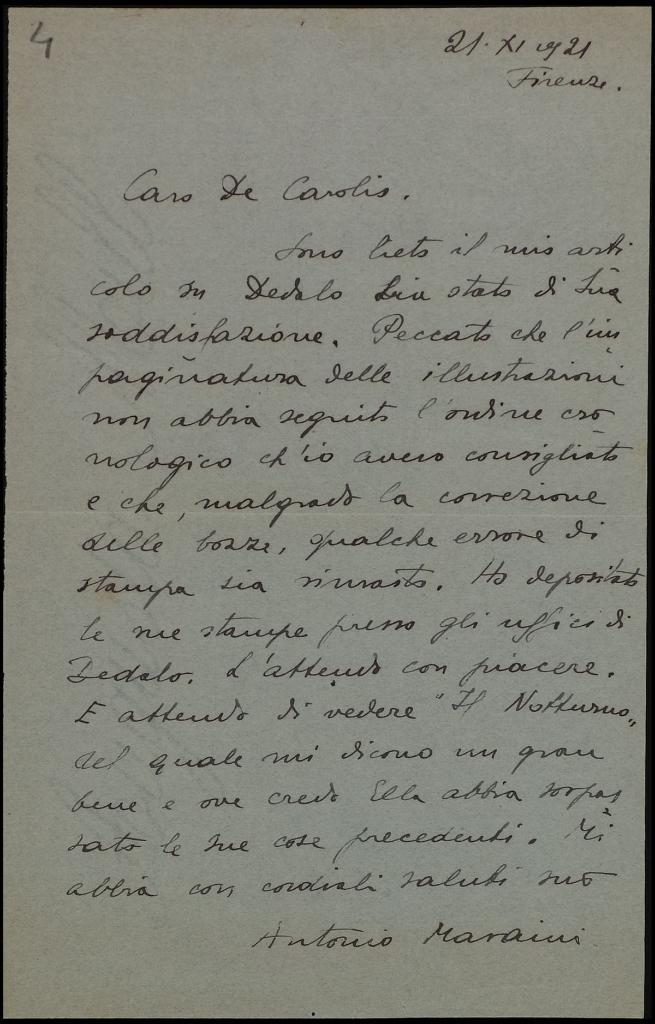 4
21·XI 1921
Firenze.
Caro De Carolis.
Sono lieto il mio arti
colo su Dedalo sia stato di Sua
soddisfazione. Peccato che l'im
paginatura delle illustrazioni
non abbia seguito l'ordine cro
nologico ch'io avevo consigliato
e che, malgrado la correzione
delle bozze, qualche errore di
stampa sia rimasto. Ho depositato
le sue stampe presso gli uffici di
Dedalo. L'attendo con piacere.
E attendo di vedere "Il Notturno„
del quale mi dicono un gran
bene e ove credo Ella abbia sorpas
sato le sue cose precedenti. Mi
abbia con cordiali saluti suo
Antonio Maraini